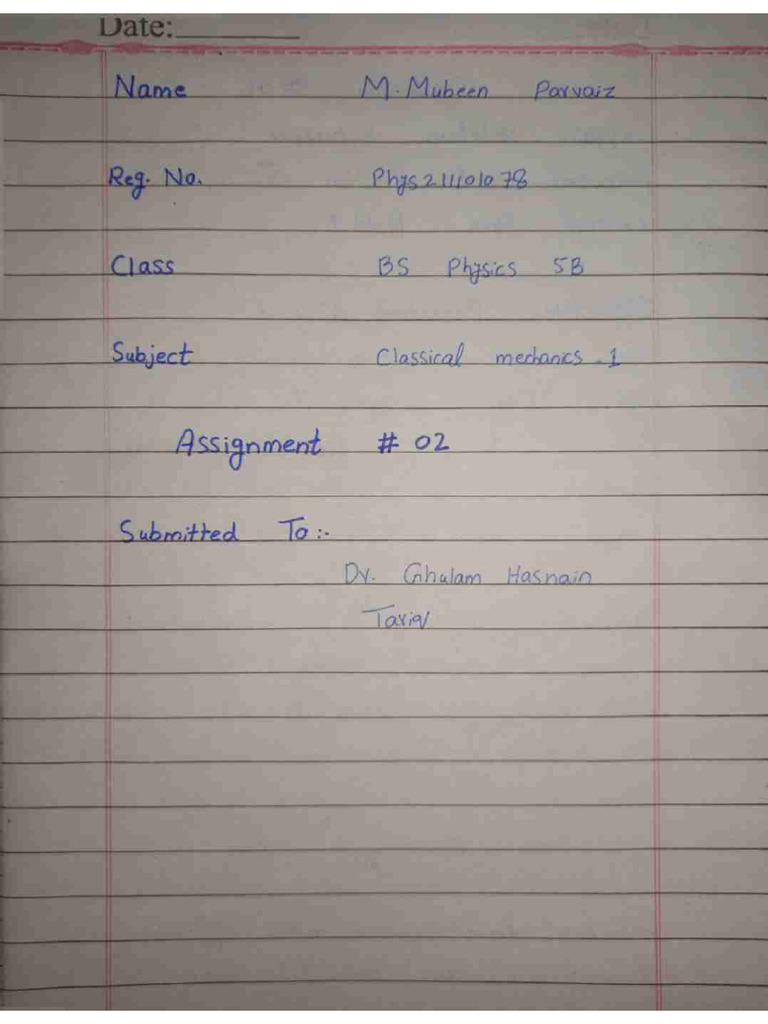 Date:
Name M. Mubeen Parvaiz
Reg. No. Phys211101078
Class BS Physics 5B
Subject Classical mechanics - 1
Assignment # 02
Submitted To :-
Dr. Ghulam Hasnain
Tariq